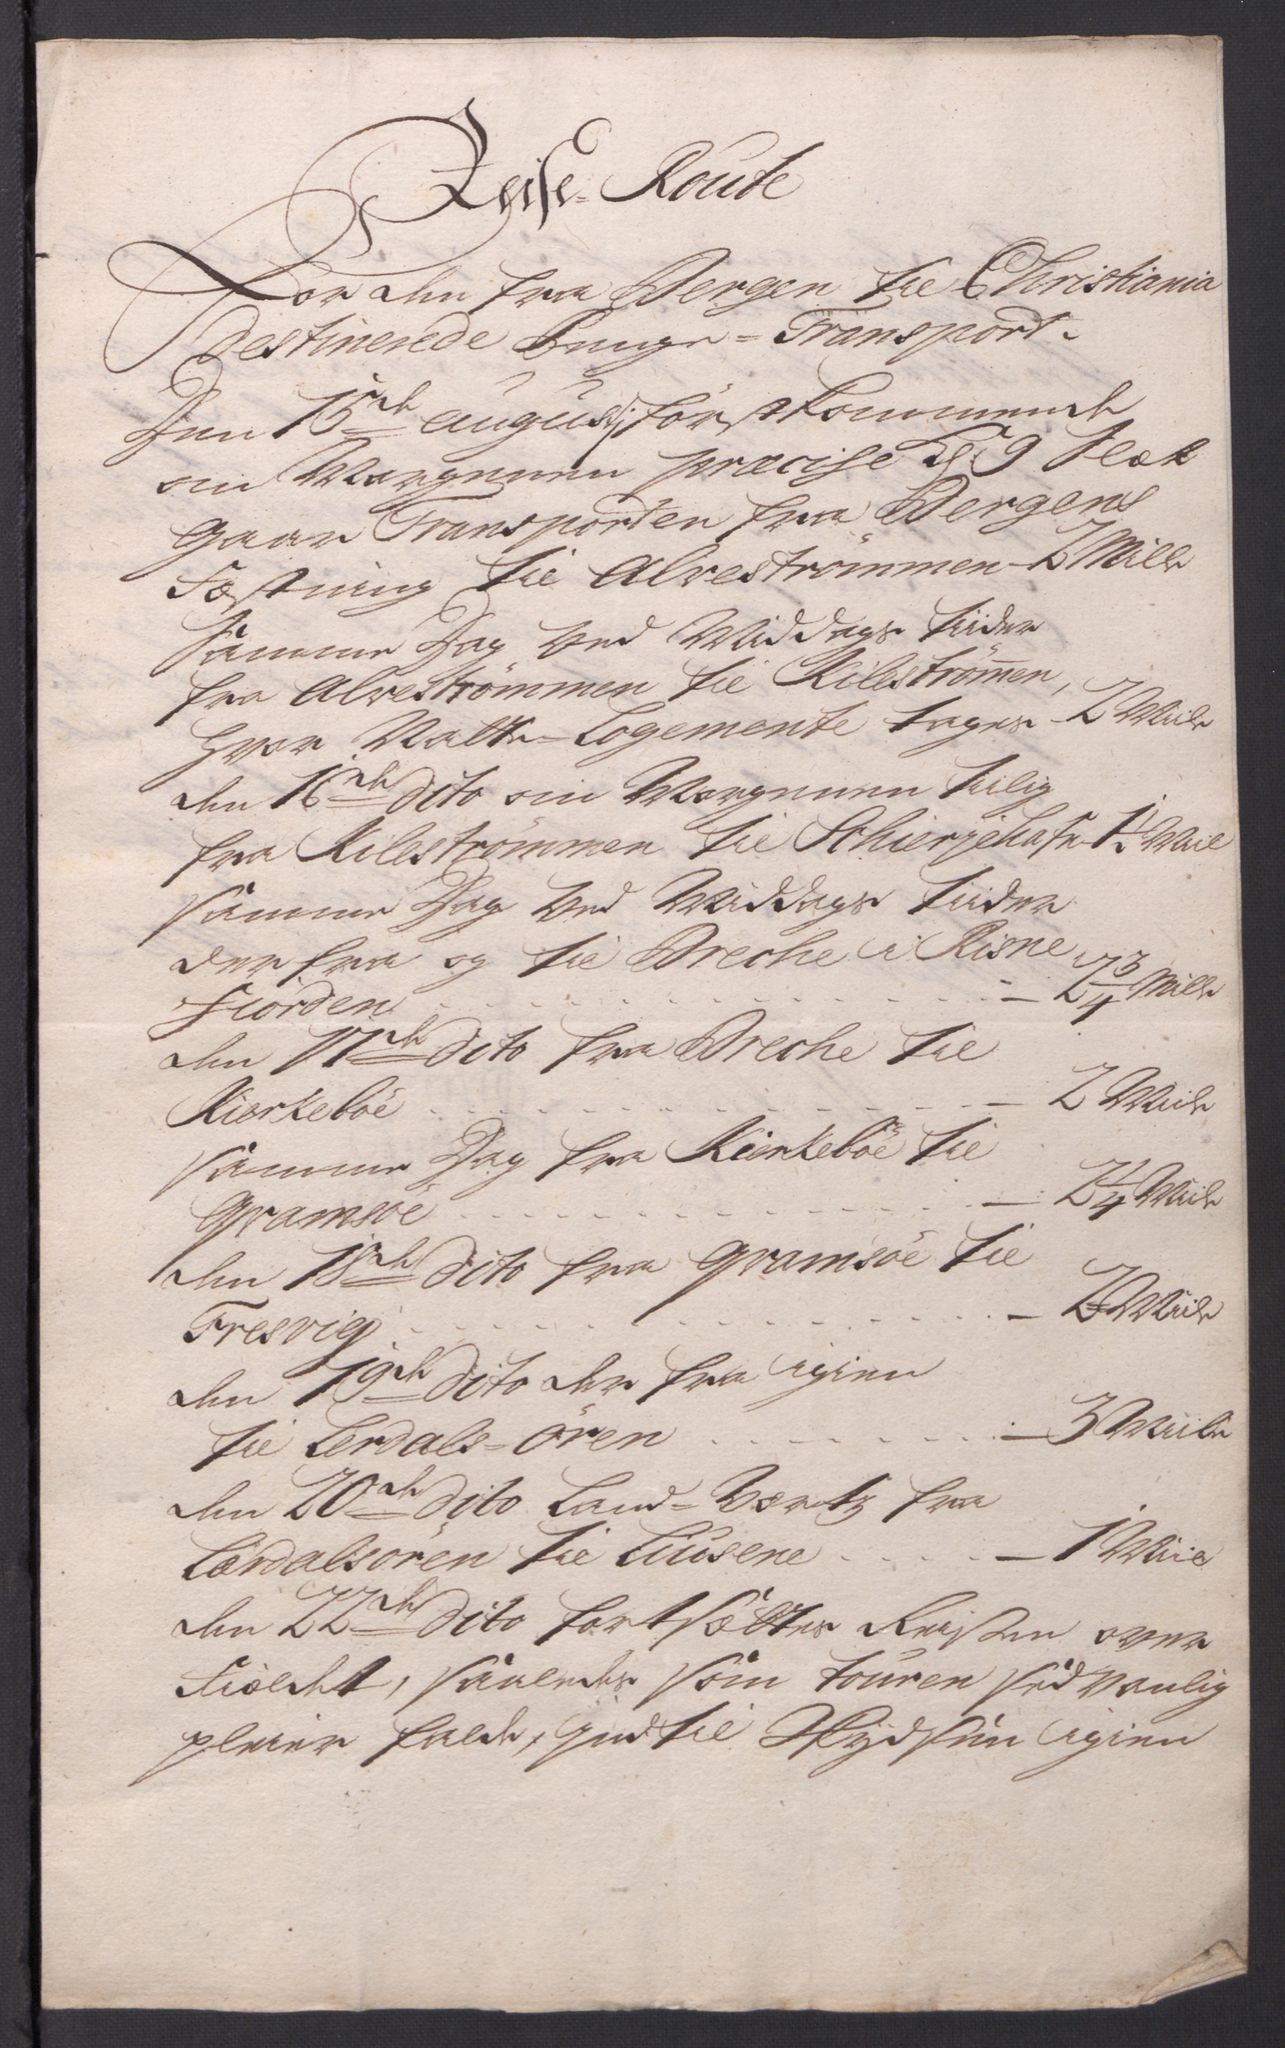 Reise-Route
For den fra Bergen til Christiania
Destinerede Penge-Transport.
Den 15de Augusti førstkommende
om Morgenen præcise Kl: 9 Slæt
gaar Transporten fra Bergens
Fæstning til Alvestrømmen - 2 Mile
Samme Dag ved Middags tiider
fra Alvestrømmen til Kilestrømmen,
hvor Natte-Logemente tages - 2 Mile
den 16de dito om Morgenen tilig
fra Kilestrømmen til Schierjehafn - 1½ Miil
samme Dag ved Middags tiider
der fra og til Breche i Risne
Fiorden - 2¾ Mile
den 17de dito fra Breche til
Kierkeböe - 2 Mile
samme Dag fra Kierkeböe til
Gramsöe - 2¼ Mile
den 18de dito fra Gramsöe til
Fresvig - 2 Mile
den 19de dito der fra igien
til Lerdals-Ören - 3 Mile
den 20de dito Land-Værtz fra
Lærdalsören til Liusene - 1 Miil
den 22de dito fortsættes Reisen over
Fieldet, saaledes som touren sædvanlig
pleier falde, ind til Skydsen igien